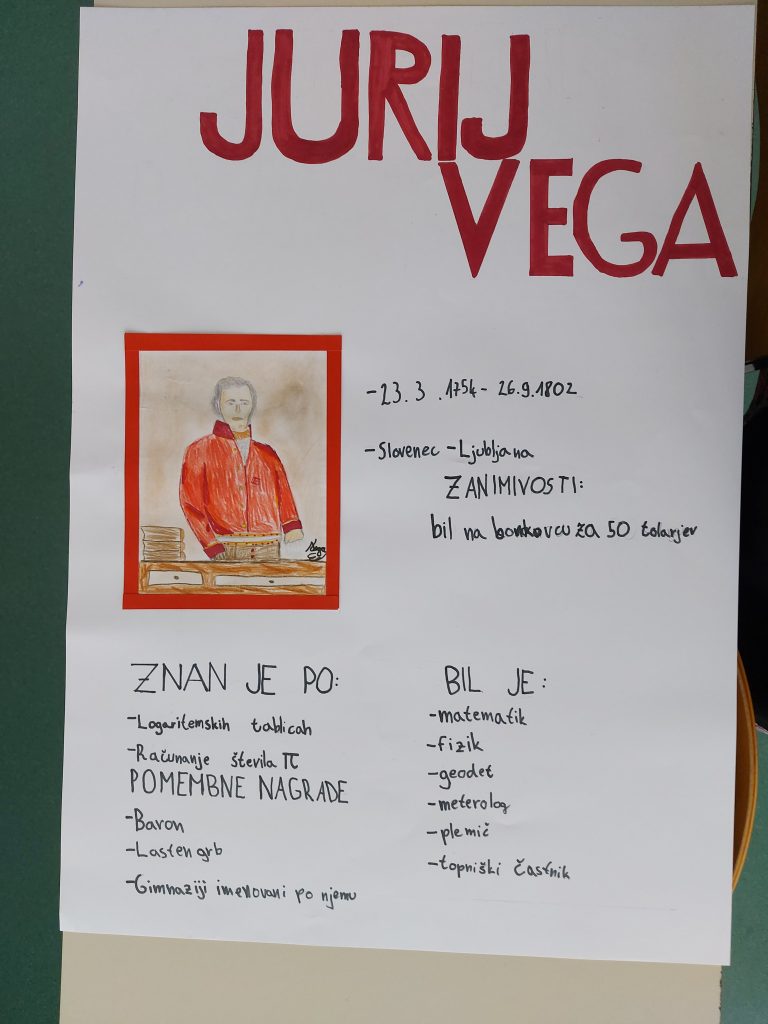 JURIJ
VEGA
-23.3.1754- 26.9.1802
-Slovenec -Ljubljana
ZANIMIVOSTI:
bil na bankovcu za 50 tolarjev
ZNAN JE PO:
-Logaritemskih tablicah
-Računanje števila π
POMEMBNE NAGRADE
-Baron
-Lasten grb
-Gimnaziji imenovani po njemu
BIL JE:
-matematik
-fizik
-geodet
-meterolog
-plemič
-topniški častnik